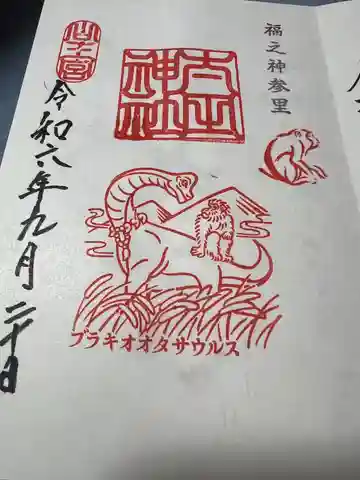 福之神参里
山王宮
太平
神社
令和六年九月二十日
ブラキオオタサウルス